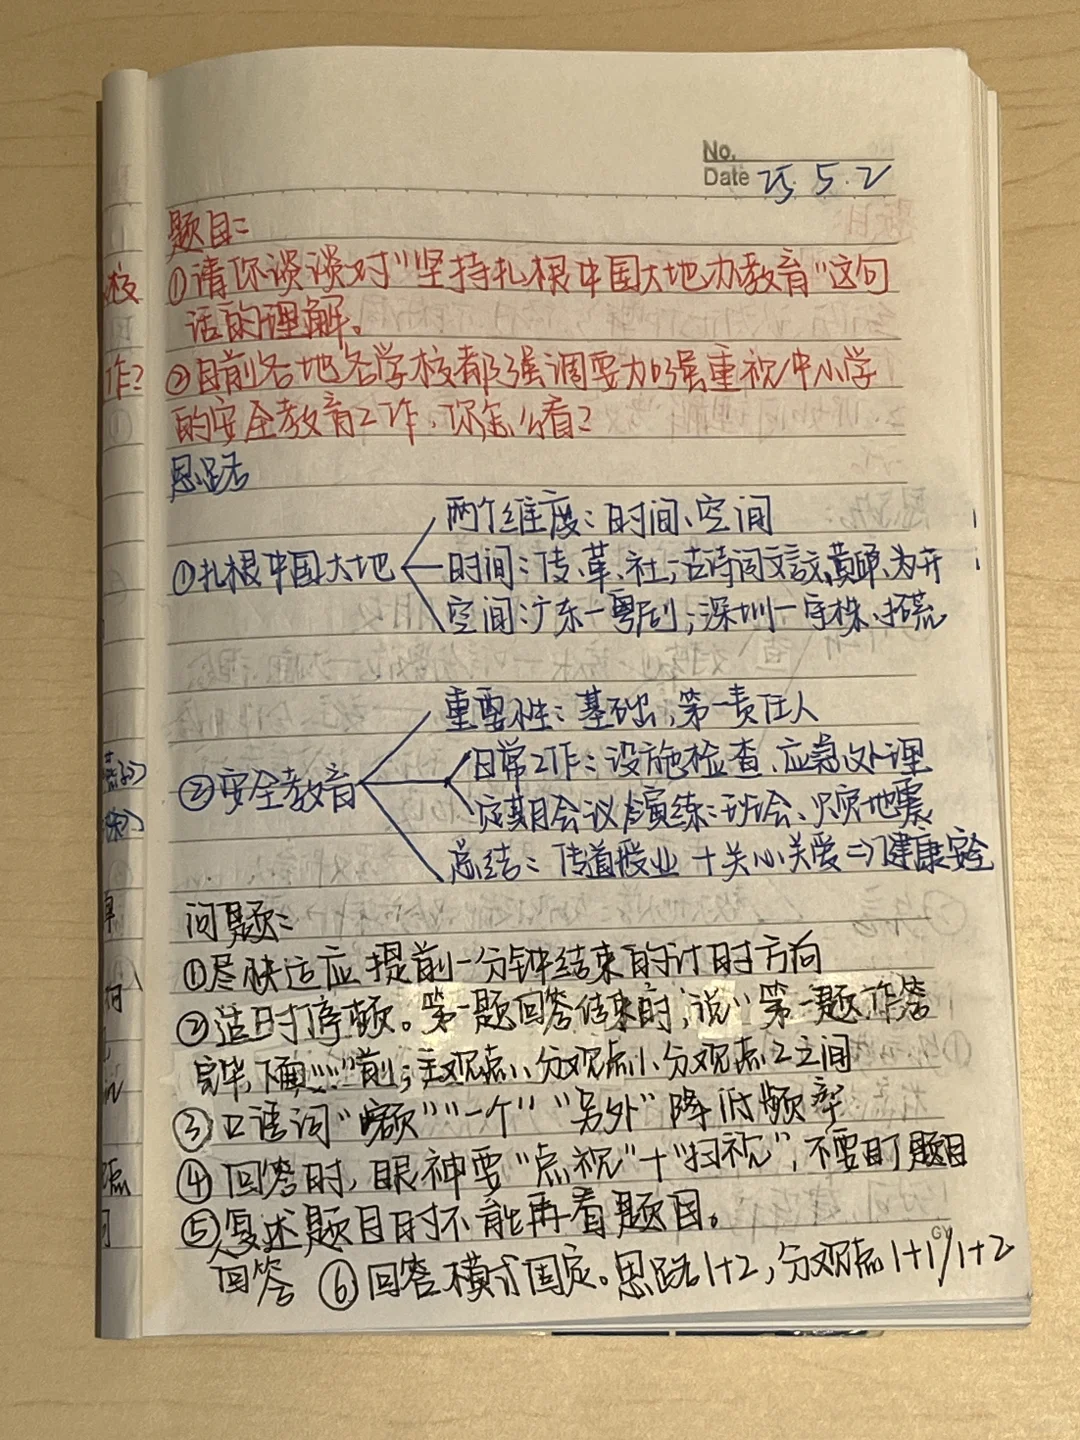 No.
Date 25. 5. 2
题目：
①请你谈谈对"坚持扎根中国大地办教育"这句
话的理解。
②目前各地各学校都强调要加强重视中小学
的安全教育工作，你怎么看？
思路
两个维度：时间、空间
①扎根中国大地
时间：传、革、社；古诗词文言文，黄
空间：广东—粤剧；深圳—守株、拓荒
重要性：基础，第一责任人
日常工作：设施检查、应急处理
②安全教育
定期会议/演练：班会、火灾地震
总结：传道授业+关心关爱⇒健康安全
问题：
①尽快适应提前一分钟结束的计时方向
②适时停顿。第一题回答结束时，说"第一题作答
完毕，下面……"前；主观点、分观点1、分观点2之间
③口语词"额""一个""另外"降低频率
④回答时，眼神要"点视"+"扫视"，不要盯题目
⑤复述题目时不能再看题目。
回答 ⑥回答模式固定。思路1+2，分观点1+1/1+2
GY
校
作？